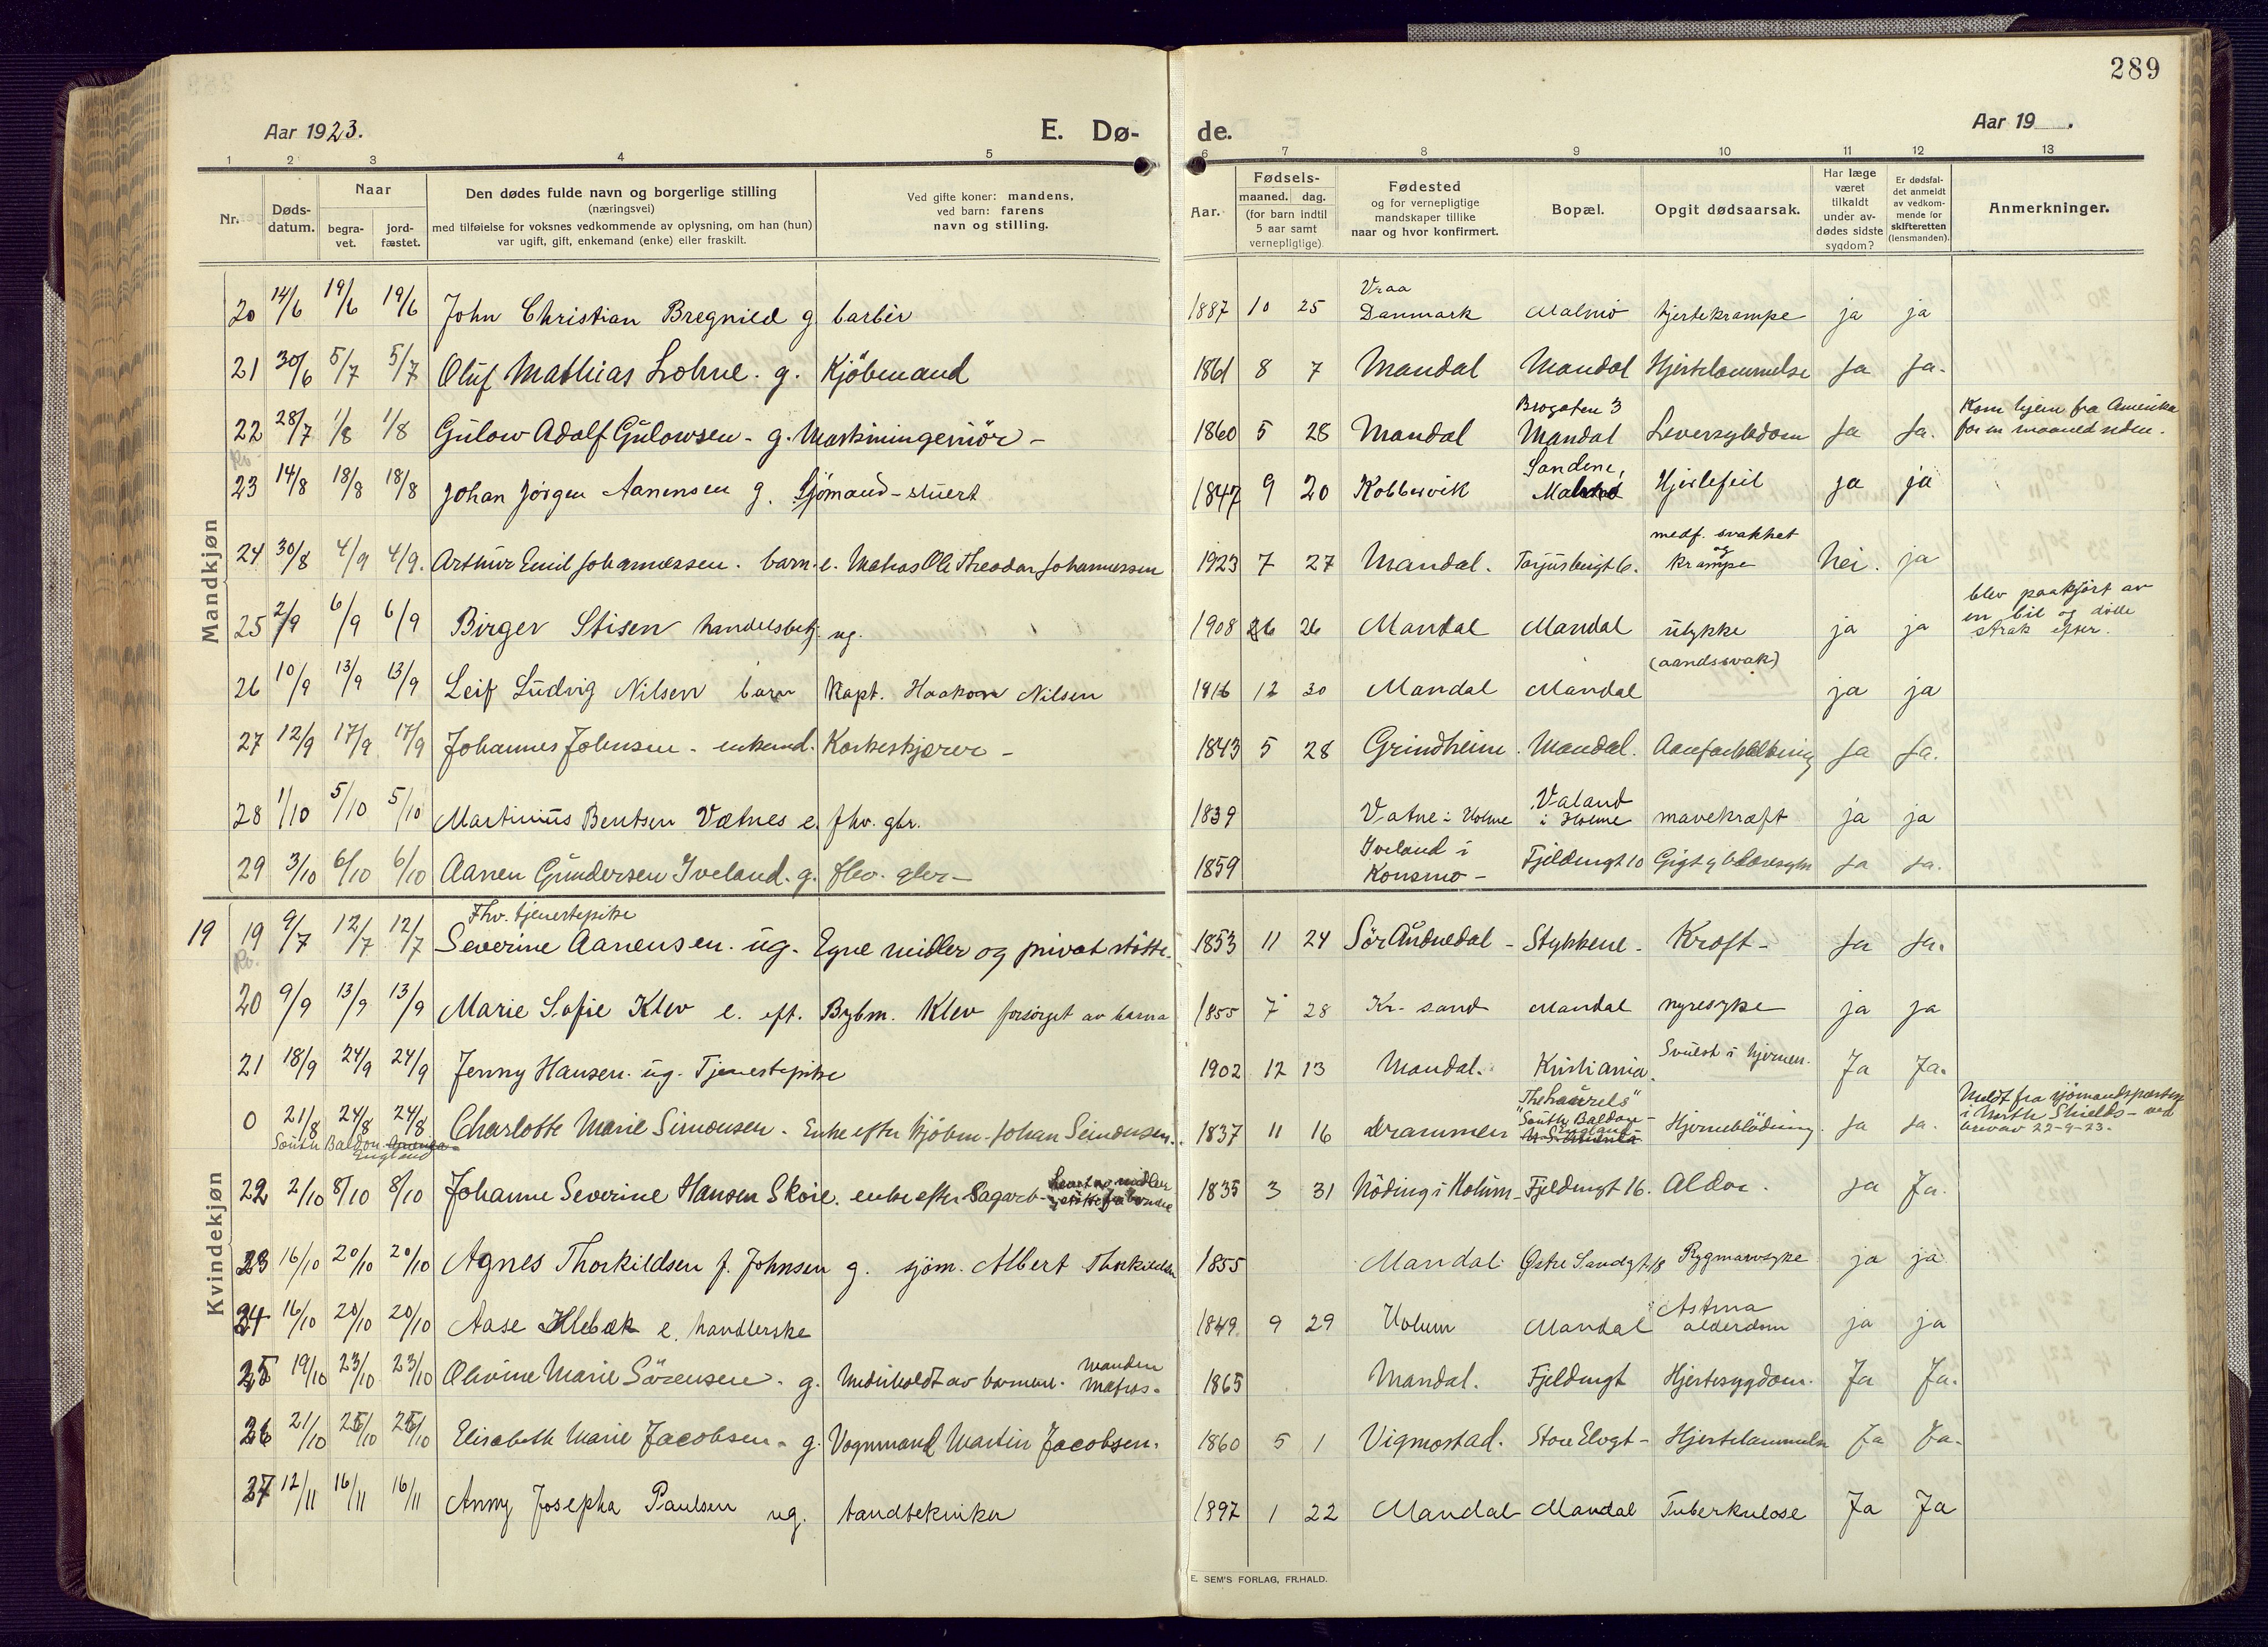 289
Aar 1923.
E. Dø-
de.
Aar 19 .
1 2 3 4 5 6 7 8 9 10 11 12 13
Nr.
Døds-
datum.
Naar
begra-
vet.
jord-
fæstet.
Den dødes fulde navn og borgerlige stilling
(næringsvei)
med tilføielse for voksnes vedkommende av oplysning, om han (hun)
var ugift, gift, enkemand (enke) eller fraskilt.
Ved gifte koner: mandens,
ved barn: farens
navn og stilling.
Fødsels-
Aar.
maaned.
dag.
(for barn indtil
5 aar samt
vernepligtige)
Fødested
og for vernepligtige
mandskaper tillike
naar og hvor konfirmert.
Bopæl.
Opgit dødsaarsak.
Har læge
været
tilkaldt
under av-
dødes sidste
sygdom?
Er dødsfal-
det anmeldt
av vedkom-
mende for
skifteretten
(lensmanden).
Anmerkninger.
Mandkjøn
Vraa
20 14/6 19/6 19/6 John Christian Bregnied g barbér 1887 10 25 Danmark Malmø hjertekrampe ja ja
21 30/6 5/7 5/7 Oluf Mathias Lohne. g. Kjöbmand 1861 8 7 Mandal Mandal Hjertelammelse Ja Ja.
Brogaten 3
Kom hjem fra Amerika
22 28/7 1/8 1/8 Gülow Adolf Gülowsen - g. Maskiningeniör - 1860 5 28 Mandal Mandal Leversykdom Ja Ja. for en maaned siden.
Sandene,
23 14/8 18/8 18/8 Johan Jörgen Aanensen g. Sjömand - stuert 1847 9 20 Kobbervik Hjertefeil ja ja
medf. svakhet
og
24 30/8 4/9 4/9. Arthur Emil Johannessen. barn. e. Matros Ole Theodor Johannessen 1923 7 27 Mandal. krampe Nei. ja
blev paakjört av
en bil og döde
25 2/9 6/9 6/9 Birger Stisen handelsbetj. ug. 1908 26 Mandal Mandal ulykke ja ja strak efter.
(aandssvak)
26 10/9 13/9 13/9 Leif Ludvig Nilsen barn Kapt. Haakon Nilsen 1916 12 30 Mandal Mandal ja ja
27 12/9 17/9 17/9 Johannes Johnsen - enkemd. Korkeskjærer - 1843 5 28 Grindheim. Mandal. Ja Ja.
Valand
28 1/10 5/10 5/10 Martinius Bentsen Vatnes e. fhv. gbr. 1839 Vatne i Holme i Holme mavekræft ja ja
Iveland i
29 3/10 6/10 6/10 Aanen Gundersen Iveland. g. fhv. gbr - 1859 Konsmo - Fjeldengt 10 Ja Ja.
Kvindekjøn
Fhv. tjenestepike
19 19 9/7 12/7 12/7 Severine Aanensen. ug. Egne midler og privat stötte. 1853 11 24 Sör Audnedal - Stykkene - Kræft - Ja Ja.
20 9/9 13/9 13/9 Marie Sofie Klev e. eft. Bybm. Klev forsörget av barna 1855 7 28 Kr. sand Mandal nyresyke ja ja
21 18/9 24/9 24/9 Jenny Hansen. ug. Tjenestepike 1902 12 13 Mandal. Kristiania. Svulst i hjernen. Ja Ja.
"The Laurels"
"South Baldon -
England -
Meldt fra sjömandspresten
i North Shields - ved
0 21/8 24/8 24/8 Charlotte Marie Simonsen - Enke efter kjöbm. Johan Simonsen. 1837 11 16 Drammen Hjerneblödning. Ja Ja. brev av 22-9-23.
South Baldon England
22 2/10 8/10 8/10 Johanne Severine Hansen Skoie. enke efter Sagarb - 1835 3 31 Nöding i Holum - Fjeldengt 16. Alder. Ja Ja.
23 16/10 20/10 20/10 Agnes Thorkildsen f. Johnsen g. sjöm. Albert Thorkildsen 1855 Mandal Østre Sandgt 18 Rygmarvsyke ja ja
Astma
24 16/10 20/10 20/10 Aase Hlebæk e. handlerske 1849. 9 29 Holum Mandal alderdom ja ja
manden
25 19/10 23/10 23/10 Olivine Marie Sörensen. g. Underholdt av barnene. matros. 1865 Mandal. Fjeldengt Hjertesygdom. Ja Ja.
26 21/10 25/10 25/10 Elisabeth Marie Jacobsen - g. Vognmand Martin Jacobsen. 1860 5 1 Vigmostad. Store Elvgt - Hjertelammelse Ja Ja.
27 12/11 16/11 16/11 Anny Josepha Paulsen ug. tandtekniker 1897 1 22 Mandal Mandal Tuberkulose Ja Ja
E. SEM'S FORLAG, FR.HALD.